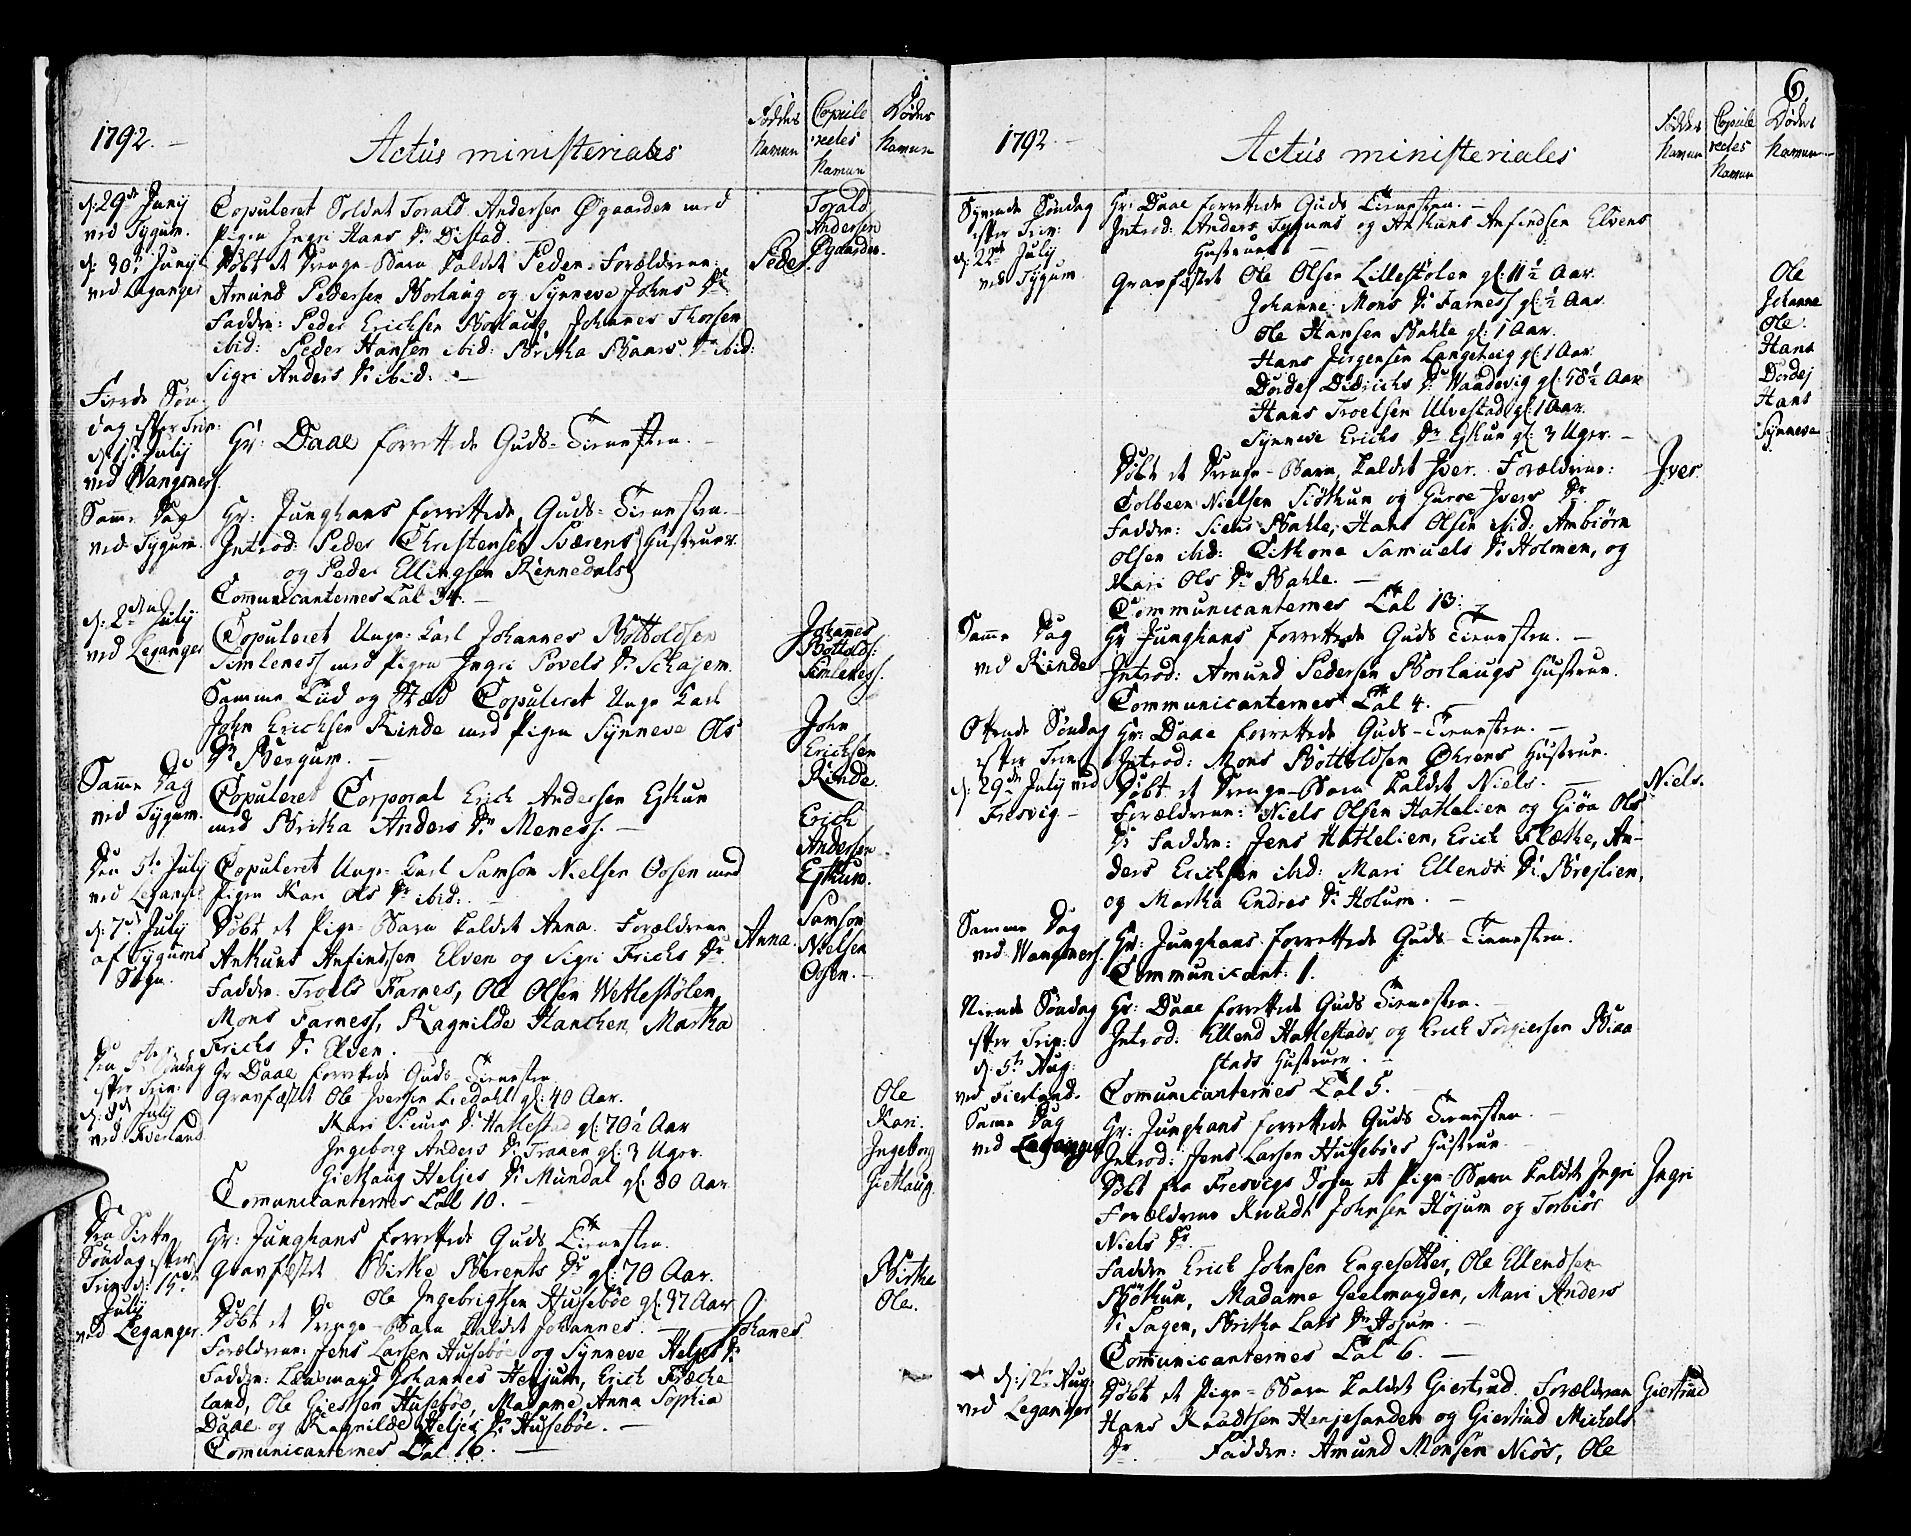 1792.
Actus ministeriales
Føddes Navne
Copuleredes Navne
Dødes Navne
d: 29de Junij ved Tygum.
Copuleret Soldat Torald Andersen Øgaarden med
Pigen Ingri Hans Dr Distad.
Torald Andersen Øgaarden.
d: 30te Junij ved Leganger
Døbt et Drenge-Barn kaldet Peder. Forældrene:
Peder
Amund Pedersen Borlaug og Synneve Johns Dr
Faddre: Peder Erichsen Borlaug, Johannes Thorsen
ibid: Peder Hansen ibid: Britha Baars Dr ibid:
Sigri Anders Dr ibid: —
Fierde Søndag efter Trin: d: 1ste Julij ved Wangsness.
Hr: Daae forrettede Guds-Tienesten. —
Samme Dag ved Tygum.
Hr: Junghans forrettede Guds-Tienesten. —
Introd: Peder Christensen Sværens Hustruer.
og Peder Ellingsen Rennedals
Comunicanternes Tal 34. —
d: 2den Julij ved Leganger
Copuleret Unge-Karl Johannes Bottoldsen
Simleness med Pigen Ingri Povels Dr Schajem.
Johannes Bottolds: Simleness.
Samme Tiid og Stæd Copuleret Unge Karl
John Erichsen Rinde med Pigen Synneve Ols
Dr Bergum. —
John Erichsen Rinde.
Samme Dag ved Tygum.
Copuleret Corporal Erich Andersen Eschum
med Britha Anders Dr Meness. —
Erich Andersen Eschum.
Den 5te Julij ved Leganger
Copuleret Unge-Karl Samson Nielsen Oosen med
Pigen Kari Ols Dr ibid: —
Samson Nielsen Oosen. —
d: 7de Julij af Tygums Sogn.
Døbt et Pige-Barn kaldet Anna. Forældrene
Anna.
Ankunt Anfindsen Elven og Sigri Frichs Dr
Faddre. Troels Farnes, Ole Olsen Wetlestølen,
Mons Farness, Ragnilde Hanchen, Martha
Frichs Dr Elven.
Den 5te Søndag efter Trin: d: 8de Julij ved Fierland
Hr Daae forrettede Guds Tienesten
Gravfæstet Ole Iversen Liedahl gl: 40 Aar.
Kari Siurs Dr Hatlestad gl: 70½ Aar
Ingeborg Anders Dr Traaen gl: 3 Uger.
Giethaug Heljes Dr Mundal gl: 80 Aar
Ole
Kari.
Ingeborg
Giethaug.
Comunicanternes Tal 10. —
Den Siette Søndag efter Trin: d: 15de Julij ved Leganger.
Hr: Junghans forrettede Guds Tienesten.
Gravfæstet Birthe Berents Dr gl: 70 Aar.
Ole Ingebrigtsen Husebøe gl: 37 Aar
Birthe
Ole.
Døbt et Drenge-Barn kaldet Johannes.
Johanes
Forældrene: Jens Larsen Husebøe og Synneve Heljes Dr
Faddre: Lensmand Johannes Henjum, Erich Fræche
land, Ole Giertsen Husebøe, Madame Anna Sophia
Daae og Ragnilde Heljes Dr Husebøe. —
Comunicanternes Tal 6. —
6.
1792.
Actus ministeriales
Føddes Navne
Copuleredes Navne
Dødes Navne
Syvende Søndag efter Trin: d: 22de Julij ved Tygum.
Hr: Daae forrettede Guds Tienesten. —
Introd: Anders Tygums og Ankuns Anfindsen Elvens
Hustruer —
Gravfæstet Ole Olsen Lillestølen gl: 11½ Aar.
Johanne Mons Dr Farness gl: ½ Aar.
Ole Hansen Bahle gl: 1 Aar.
Hans Jørgensen Langeteig gl: 1 Aar.
Dordej Didrichs Dr Waadevig gl: 58½ Aar
Hans Troelsen Ulvestad gl: 1 Aar.
Synneve Erichs Dr Eschum gl: 3 Uger. —
Ole
Johanne
Ole.
Hans
Dordej
Hans
Synneve
Døbt et Drenge-Barn kaldet Iver. Forældrene:
Iver.
Tolbeen Nielsen Siøthun og Guroe Ivers Dr.
Faddre: Siurs Bahle, Hans Olsen ibid: Ambiørn
Olsen ibid: Cithone Samuels Dr Holmen, og
Kari Ols Dr Bahle. —
Communicanternes Tal 13. —
Samme Dag ved Rinde
Hr Junghans forrettede Guds Tienesten. —
Introd: Amund Pedersen Borlaugs Hustrue.
Communicanternes Tal 4. —
Ottende Søndag efter Trin: d: 29de Julij ved Fresvig —
Hr: Daae forrettede Guds-Tienesten. —
Introd: Mons Bottoldsen Øhrens Hustrue.
Døbt et Drenge-Barn kaldet Niels. —
Niels.
Forældrene: Niels Olsen Hatlelien og Giøa Ols
Dr Faddre: Jens Hatlelien, Erich Slæthe, An-
ders Erichsen ibid: Mari Ellends Dr Brejlien,
og Martha Endres Dr Holum. —
Samme Dag ved Wangsness.
Hr: Junghans forrettede Guds-Tienesten.
Communicant: 1.
Niende Søndag efter Trin: d: 5te Aug: ved Fierland.
Hr: Daae forrettede Guds Tienesten. —
Introd: Ellend Hatlestads og Erich Torgiersen Biaa
stads Hustruer. —
Comunicanternes Tal 5. —
Samme Dag ved Leganger
Hr: Junghans forrettede Guds Tienesten. —
Introd: Jens Larsen Husebøes Hustrue.
Døbt fra Fresvigs Sogn et Pige-Barn kaldet Ingri
Ingri
Forældrene Knudt Johnsen Højum og Torbiør
Niels Dr
Faddre Erich Johnsen Engesetter, Ole Ellendsen
Bøthun, Madame Geelmuyden, Mari Anders
Dr Sagen, Britha Lars Dr Hojum. —
Comunicanternes Tal 6. —
d: 12te Aug: ved Leganger
Døbt et Pige-Barn kaldet Giertrud. Forældrene
Giertrud
Hans Knudtsen Henjesanden og Giertrud Michels
Dr. Faddre: Amund Monsen Niøs, Ole